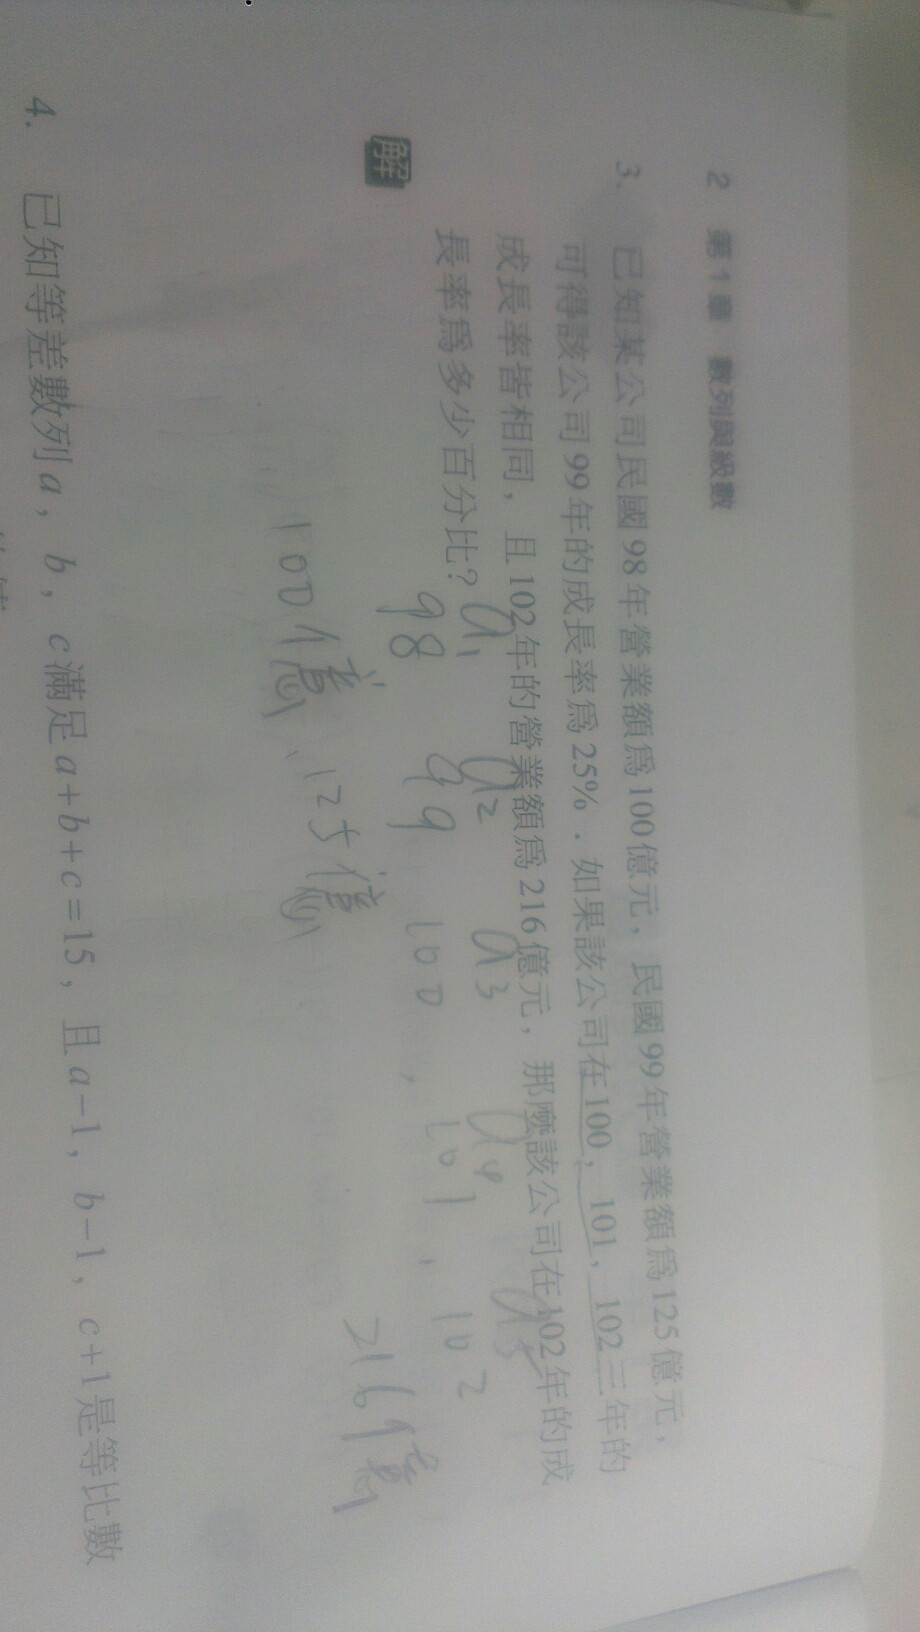 2 第1章 數列與級數
3. 已知某公司民國98年營業額為100億元，民國99年營業額為125億元，
可得該公司99年的成長率為25%．如果該公司在100，101，102三年的
成長率皆相同，且102年的營業額為216億元，那麼該公司在102年的成
長率為多少百分比？
a1 a2 a3 a4 a5
98 99 100, 101, 102
解
100億、125億 216億
4. 已知等差數列a，b，c滿足a+b+c=15，且a−1，b−1，c+1是等比數